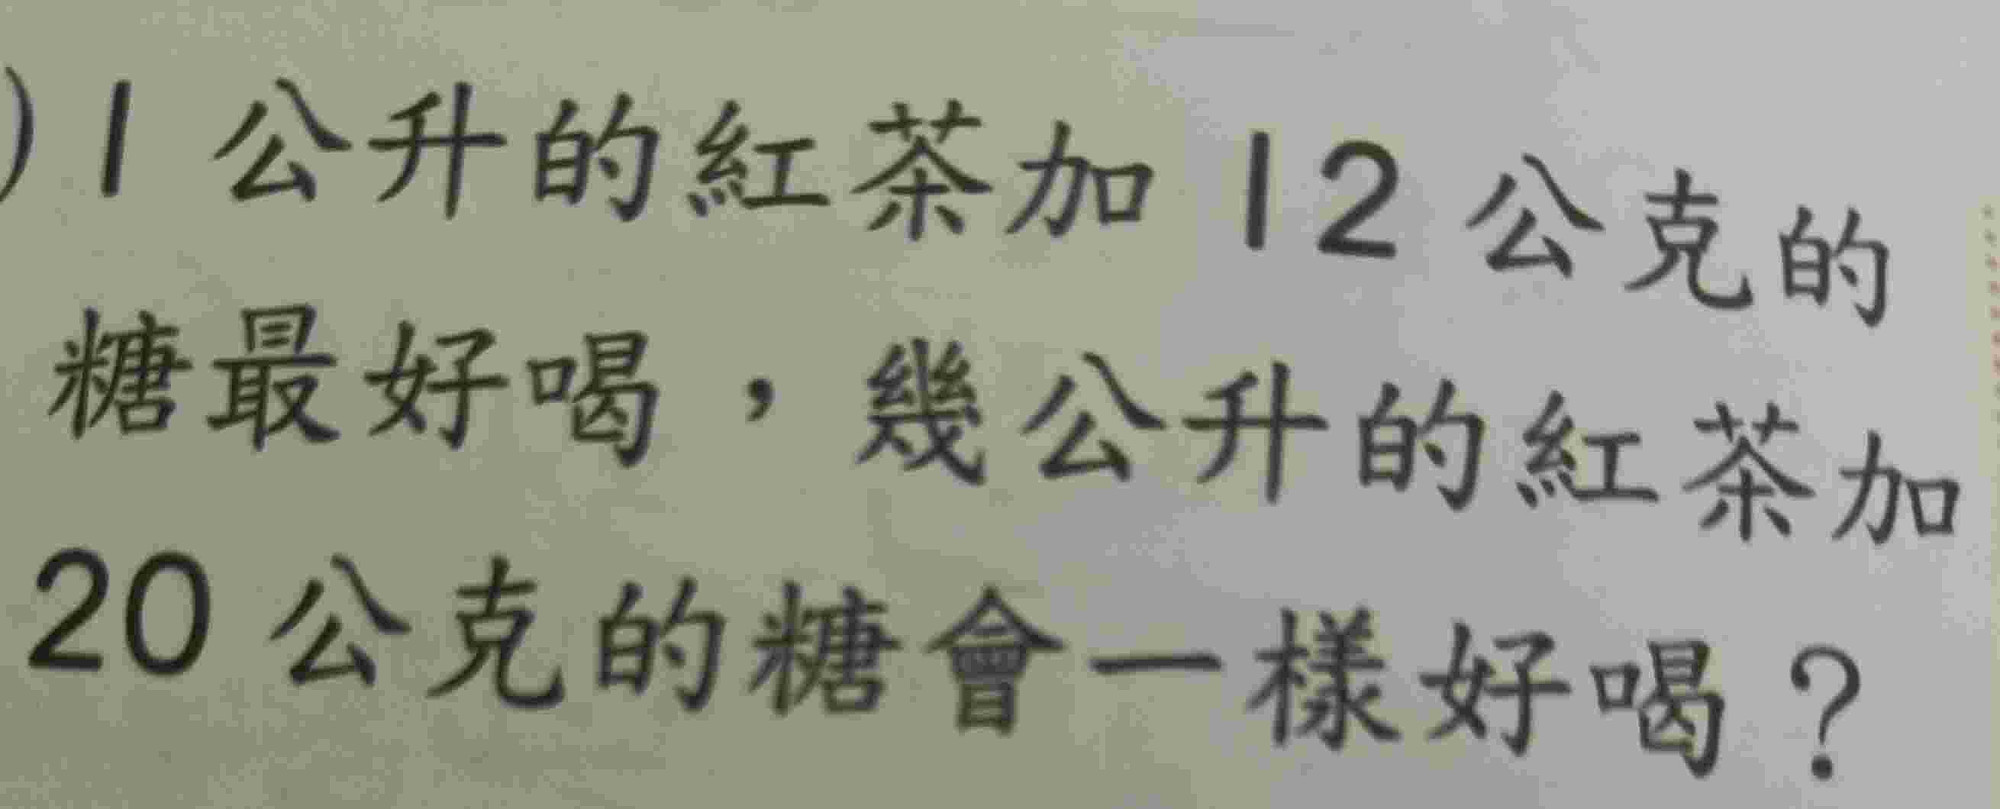 ) 1 公升的紅茶加 12 公克的
糖最好喝，幾公升的紅茶加
20 公克的糖會一樣好喝？